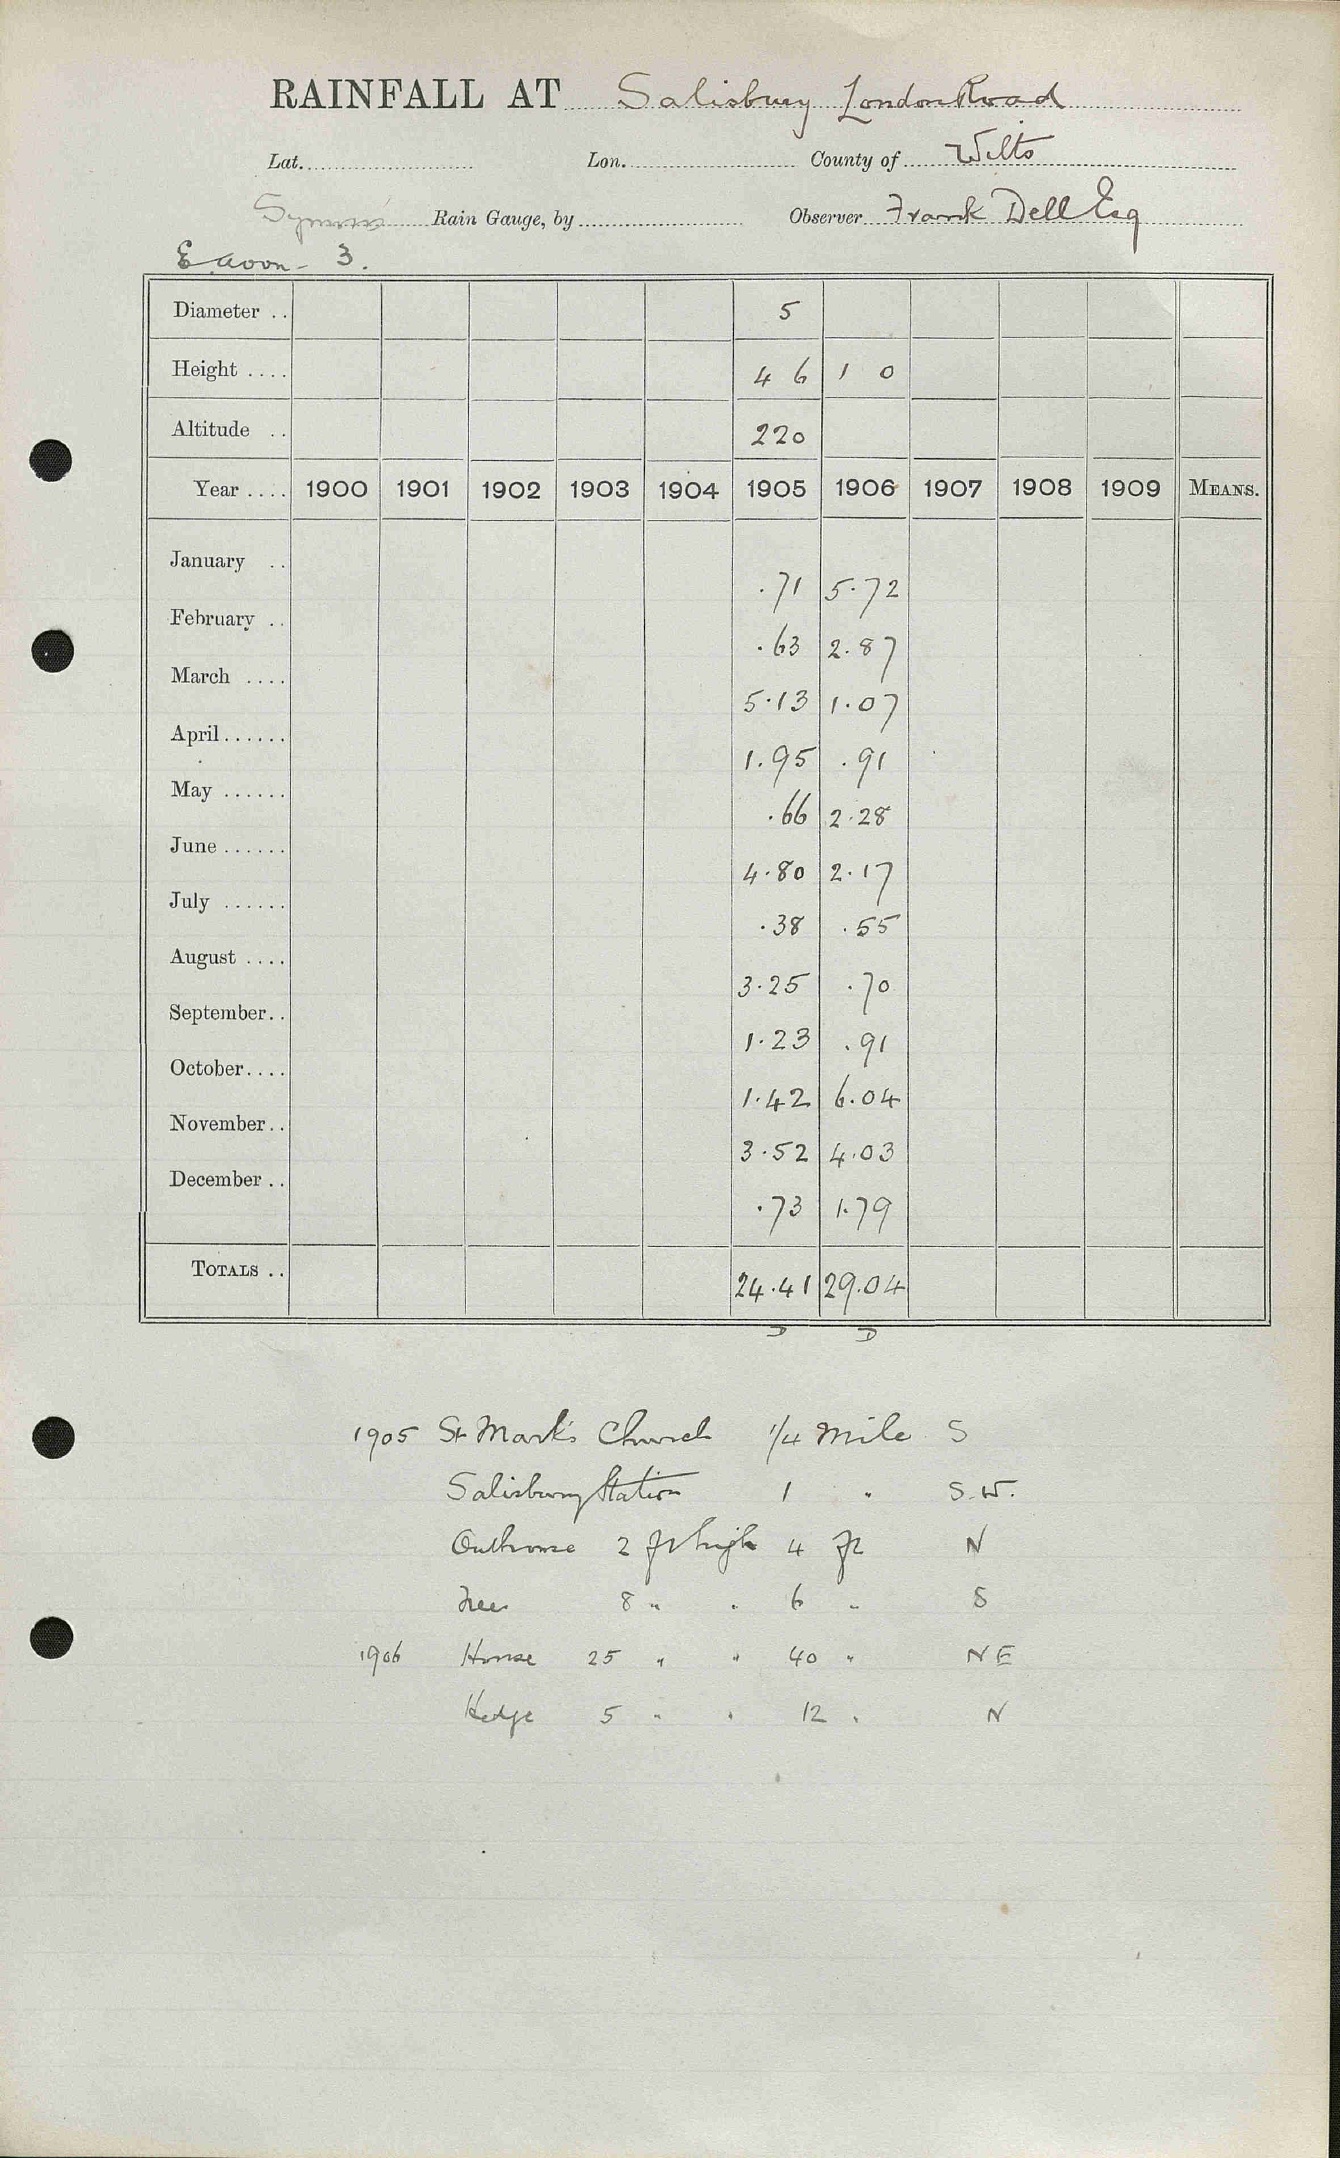 RAINFALL AT Salisbury London Road
Lat. Lon. County of Wilts
Symons's Rain Gauge, by Observer Frank Dell Esq
E Avon - 3.
Diameter .. 5
Height .... 4 6 1 0
Altitude .. 220
Year .... 1900 1901 1902 1903 1904 1905 1906 1907 1908 1909 MEANS.
January .. .71 5.72
February .. .63 2.87
March .... 5.13 1.07
April...... 1.95 .91
May ...... .66 2.28
June ...... 4.80 2.17
July ...... .38 .55
August .... 3.25 .70
September.. 1.23 .91
October.... 1.42 6.04
November.. 3.52 4.03
December .. .73 1.79
TOTALS .. 24.41 29.04
D D
1905 St Mark's Church 1/4 Mile S
Salisbury Station 1 " S.W.
Outhouse 2 ft high 4 ft N
Trees 8 " " 6 " S
1906 House 25 " " 40 " NE
Hedge 5 " " 12 " N